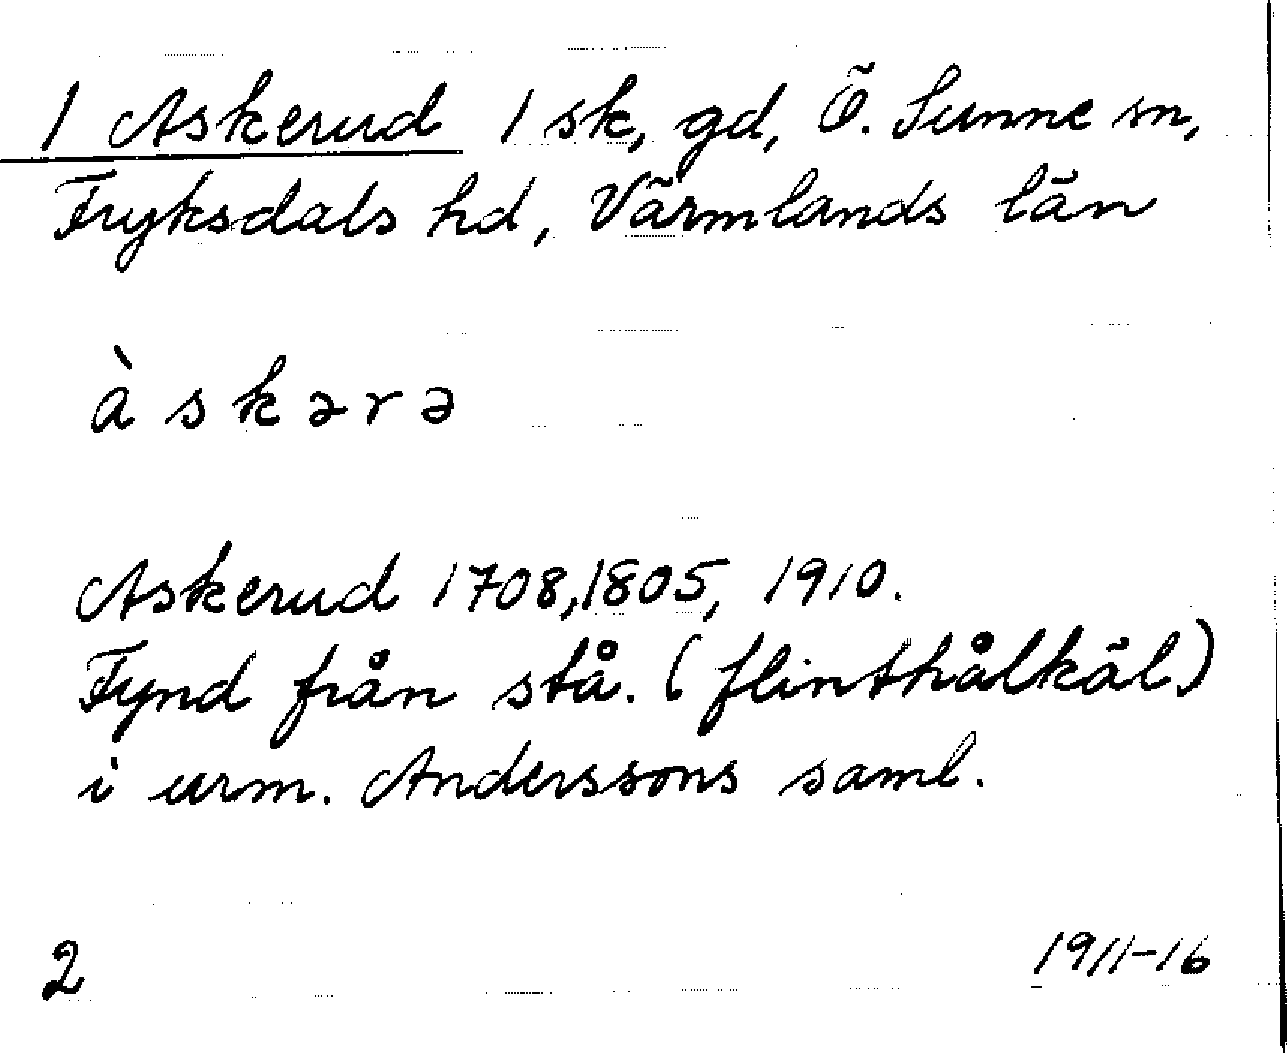 1 Askerud 1 sk, gd, Ö. Sunne sn,
Fryksdals hd, Värmlands län
à s k ə r ə
Askerud 1708, 1805, 1910.
Fynd från stå. (flinthålkäl)
i urm. Anderssons saml.
2
1911-16